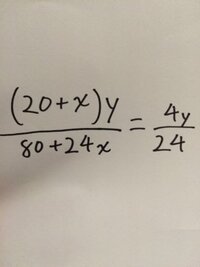 (20+x)y / 80+24x = 4y / 24